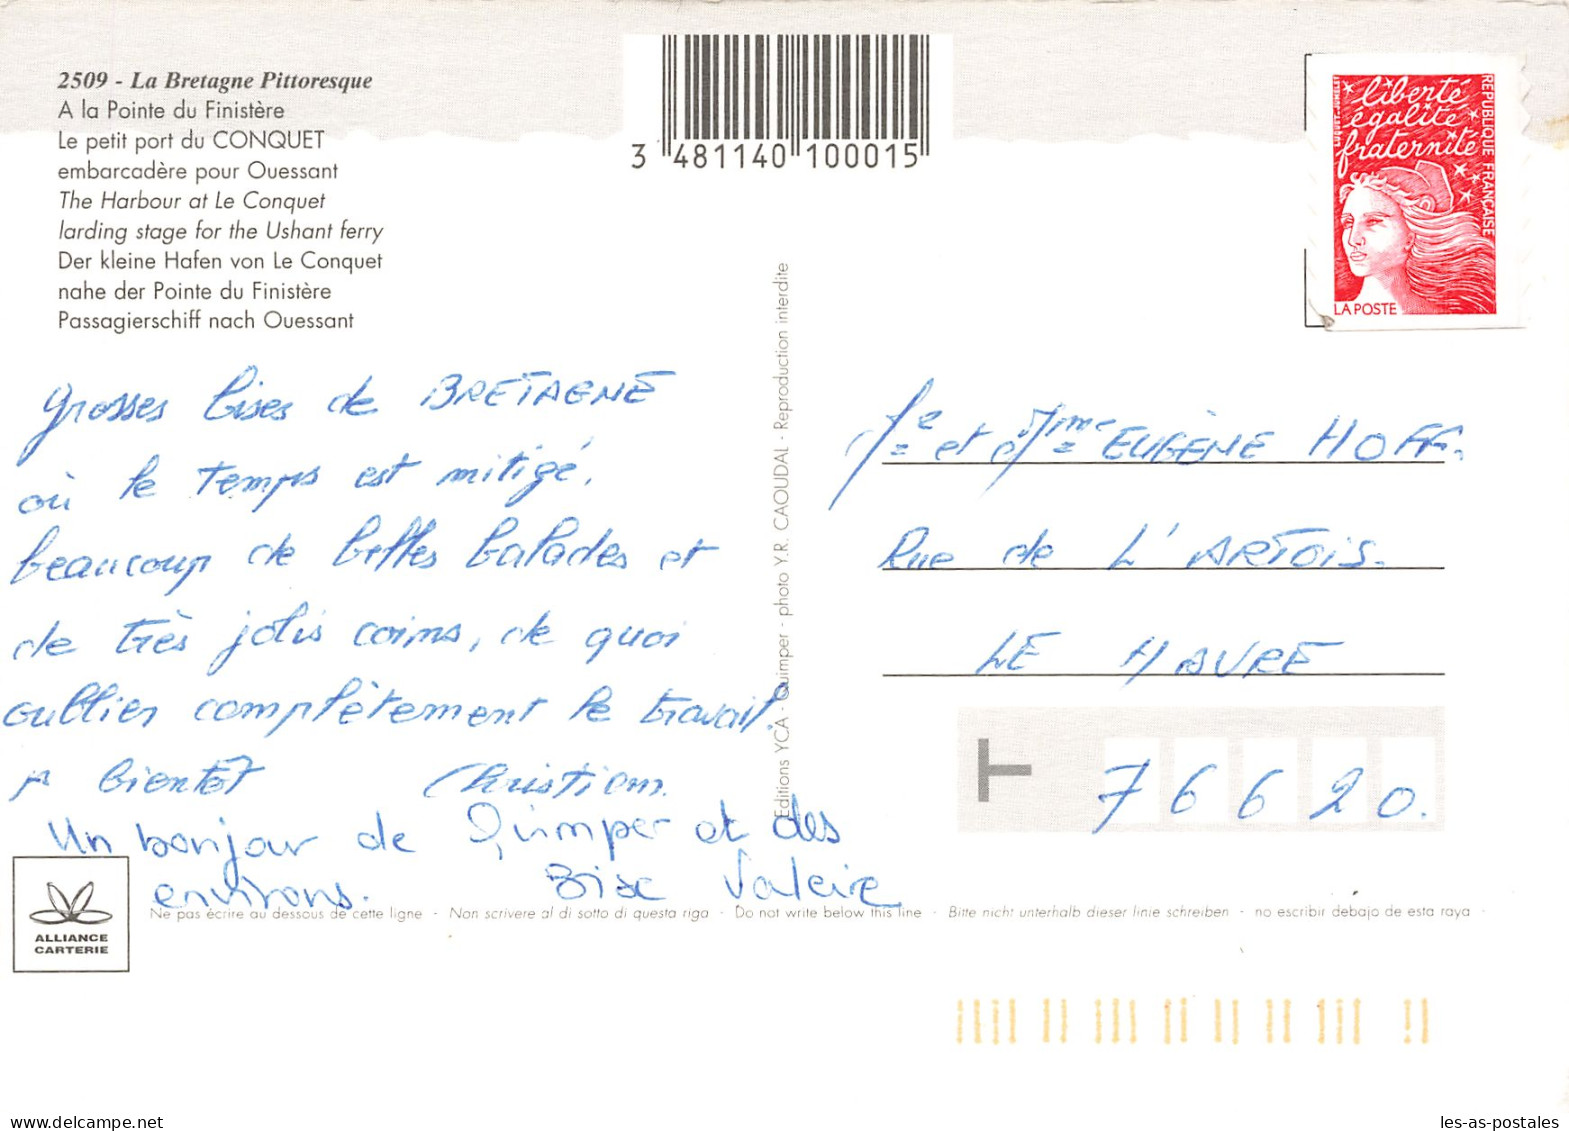 2509 - La Bretagne Pittoresque
A la Pointe du Finistère
Le petit port du CONQUET
embarcadère pour Ouessant
The Harbour at Le Conquet
larding stage for the Ushant ferry
Der kleine Hafen von Le Conquet
nahe der Pointe du Finistère
Passagierschiff nach Ouessant
3 481140 100015
liberté
égalité
fraternité
RÉPUBLIQUE FRANÇAISE
LA POSTE
grosses bises de BRETAGNE
où le temps est mitigé.
beaucoup de belles balades et
de très jolis coins, de quoi
oublier complètement le travail.
A bientôt Christian
Un bonjour de Quimper et des
environs. Bise Valérie
Editions YCA - Quimper - photo Y.R. CAOUDAL - Reproduction interdite
et Mme EUGÈNE HOFF.
Rue de L'ARTOIS.
LE HAVRE
76620.
ALLIANCE
CARTERIE
Ne pas écrire au dessous de cette ligne - Non scrivere al di sotto di questa riga - Do not write below this line - Bitte nicht unterhalb dieser linie schreiben - no escribir debajo de esta raya -
les-as-postales